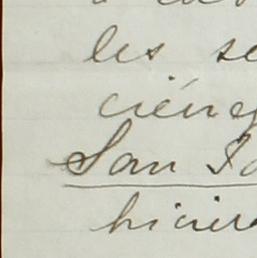 les se
ciéneg
San Ja
hicier